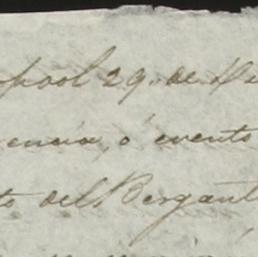 pool 29. de
encia, ó evento
to del Bergant